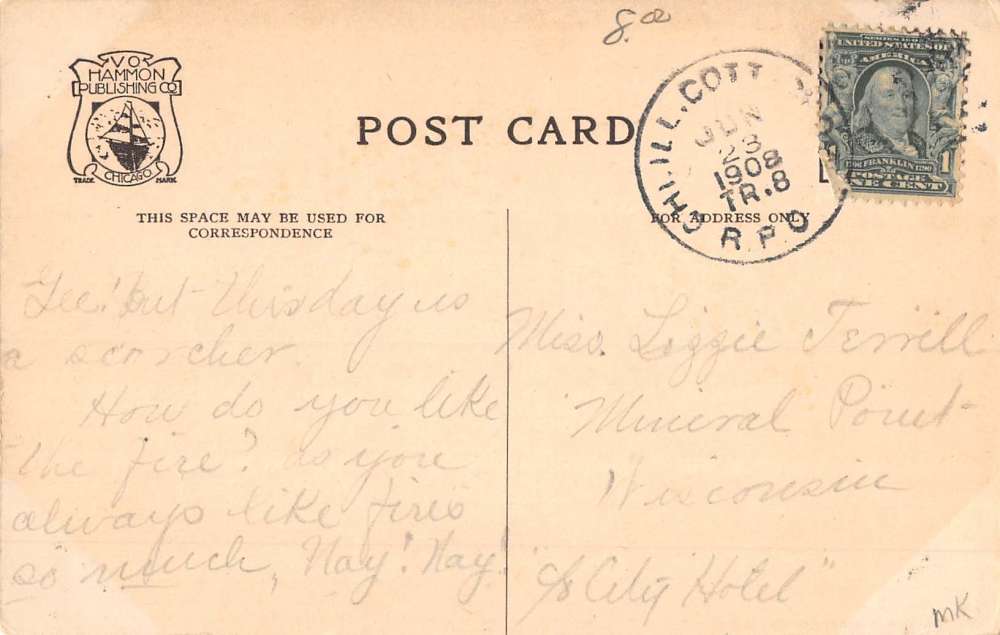 8.00
V O
HAMMON
PUBLISHING CO
CHICAGO
TRADE MARK
POST CARD
THIS SPACE MAY BE USED FOR
CORRESPONDENCE
FOR ADDRESS ONLY
CHI. ILL. COTT
JUN
23
1908
TR. 8
R P O
UNITED STATES OF
AMERICA
FRANKLIN
POSTAGE
ONE CENT
1
Gee! but this day is
a scorcher.
How do you like
the fire? as you
always like fires
so much, Nay! Nay!
Miss. Lizzie Terrill
Mineral Point
Wisconsin
"c/o City Hotel"
MK